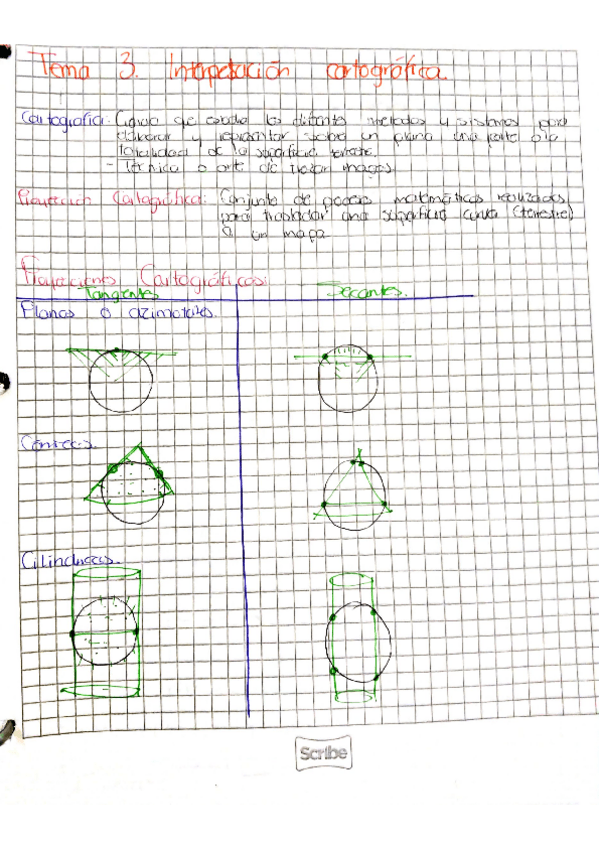 Tema 3. Interpetación cartográfica.
Cartografía: Ciencia que estudia los diferentes metodos y sistemas para
elaborar y representar sobre un plano una parte o la
totalidad de la superficie terrestre.
- Técnica o arte de trazar mapas
Proyección Cartográfica: Conjunto de procesos matemáticos realizados
para trasladar una superficie curva (terrestre)
a un mapa
Proyecciones Cartográficas:
Tangentes Secantes.
Planas o azimutales.
Cónicas.
Cilíndricas.
Scribe